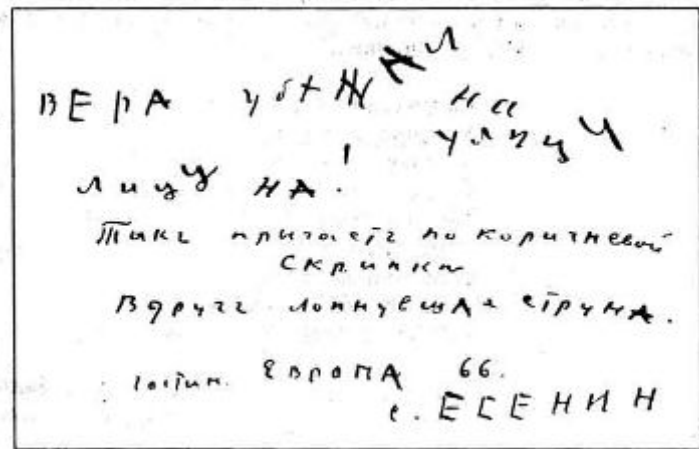 ВЕРА убѢЖАЛ на
улицу
лицу НА!
Такъ прыгаетъ по коричневой
Скрипки
Вдругъ лопнувшАя струнА.
гостин. ЕвропА 66.
с. ЕСЕНИН